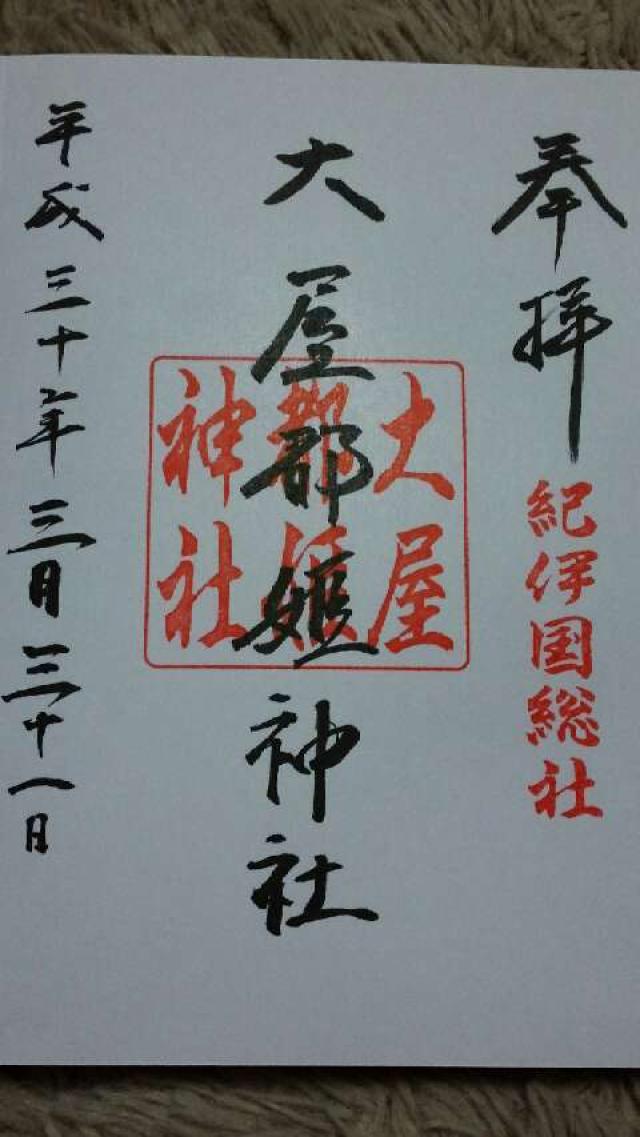 奉拝
紀伊国総社
大屋都姫神社
大屋
都姫
神社
平成三十年三月三十一日